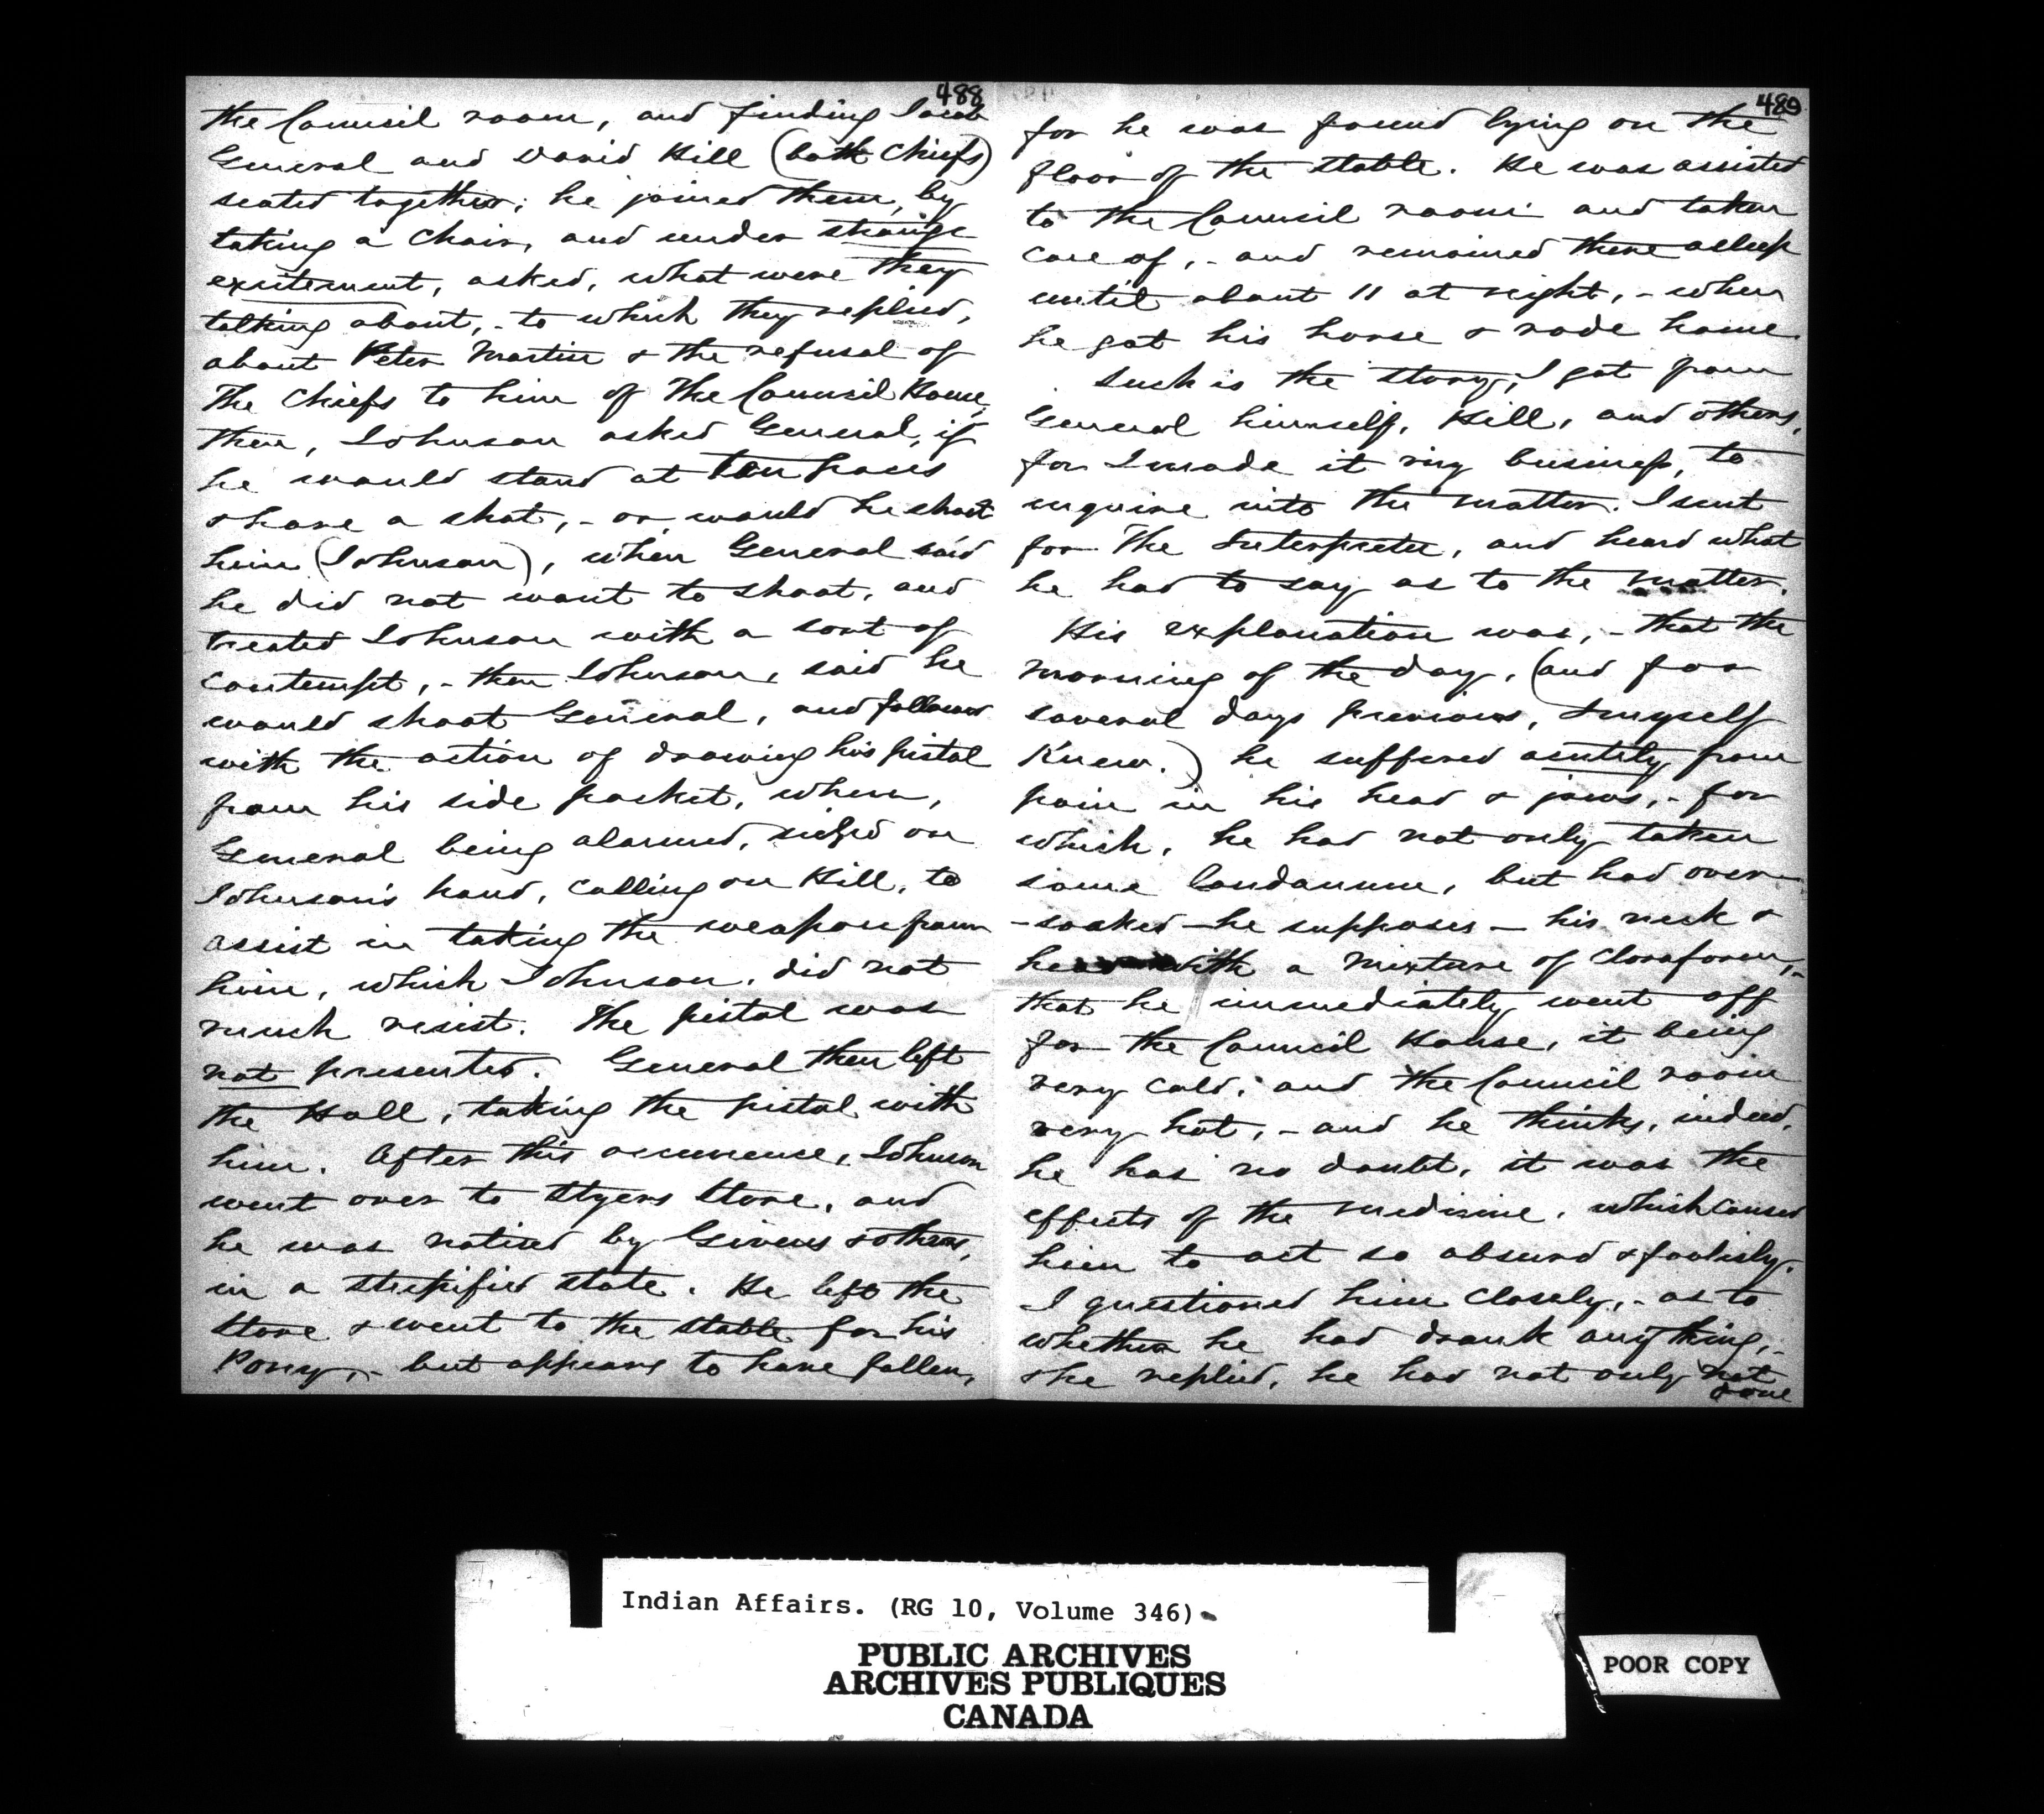 488
the Council room, and finding Jacob
General and David Hill (both Chiefs)
seated together; he joined them, by
taking a chair, and under strange
excitement, asked, what were they
talking about,- to which they replied,
about Peter Martin & the refusal of
the Chiefs to him of the Council House,
then, Johnson asked General, if
he would stand at ten paces
& have a shot,- or would he shoot
him (Johnson), when General said
he did not want to shoot, and
treated Johnson with a sort of
contempt,- then Johnson, said he
would shoot General, and follows
with the action of drawing his pistol
from his side pocket, when,
General being alarmed, seized on
Johnson's hand, calling on Hill, to
assist in taking the weapon from
him, which Johnson, did not
much resist. The pistol was
not presented. General then left
the Hall, taking the pistol with
him. After this occurrence, Johnson
went over to Styers Store, and
he was noticed by Givens & others,
in a stupified state. He left the
Store & went to the stable for his
Pony,- but appears to have fallen,
489
for he was found lying on the
floor of the stable. He was assisted
to the Council room and taken
care of,- and remained there asleep
until about 11 at night,- when
he got his horse & rode home.
Such is the story, I got from
General himself, Hill, and others,
for I made it my business, to
inquire into the matter. I sent
for the Interpreter, and heard what
he had to say as to the matter.
His explanation was,- that the
morning of the day, (and for
several days previous, I myself
knew.) he suffered acutely from
pain in his head & jaws,- for
which, he had not only taken
some laudanum, but had over-
-soaked - he supposes - his neck &
head with a mixture of Cloroform,-
that he immediately went off
for the Council House, it being
very cold, and the Council room
very hot,- and he thinks, indeed,
he has no doubt, it was the
effects of the medicine, which caused
him to act so absurd & foolishly.
I questioned him closely,- as to
whether he had drank anything,-
& he replied, he had not only not
done
Indian Affairs. (RG 10, Volume 346)
PUBLIC ARCHIVES
ARCHIVES PUBLIQUES
CANADA
POOR COPY